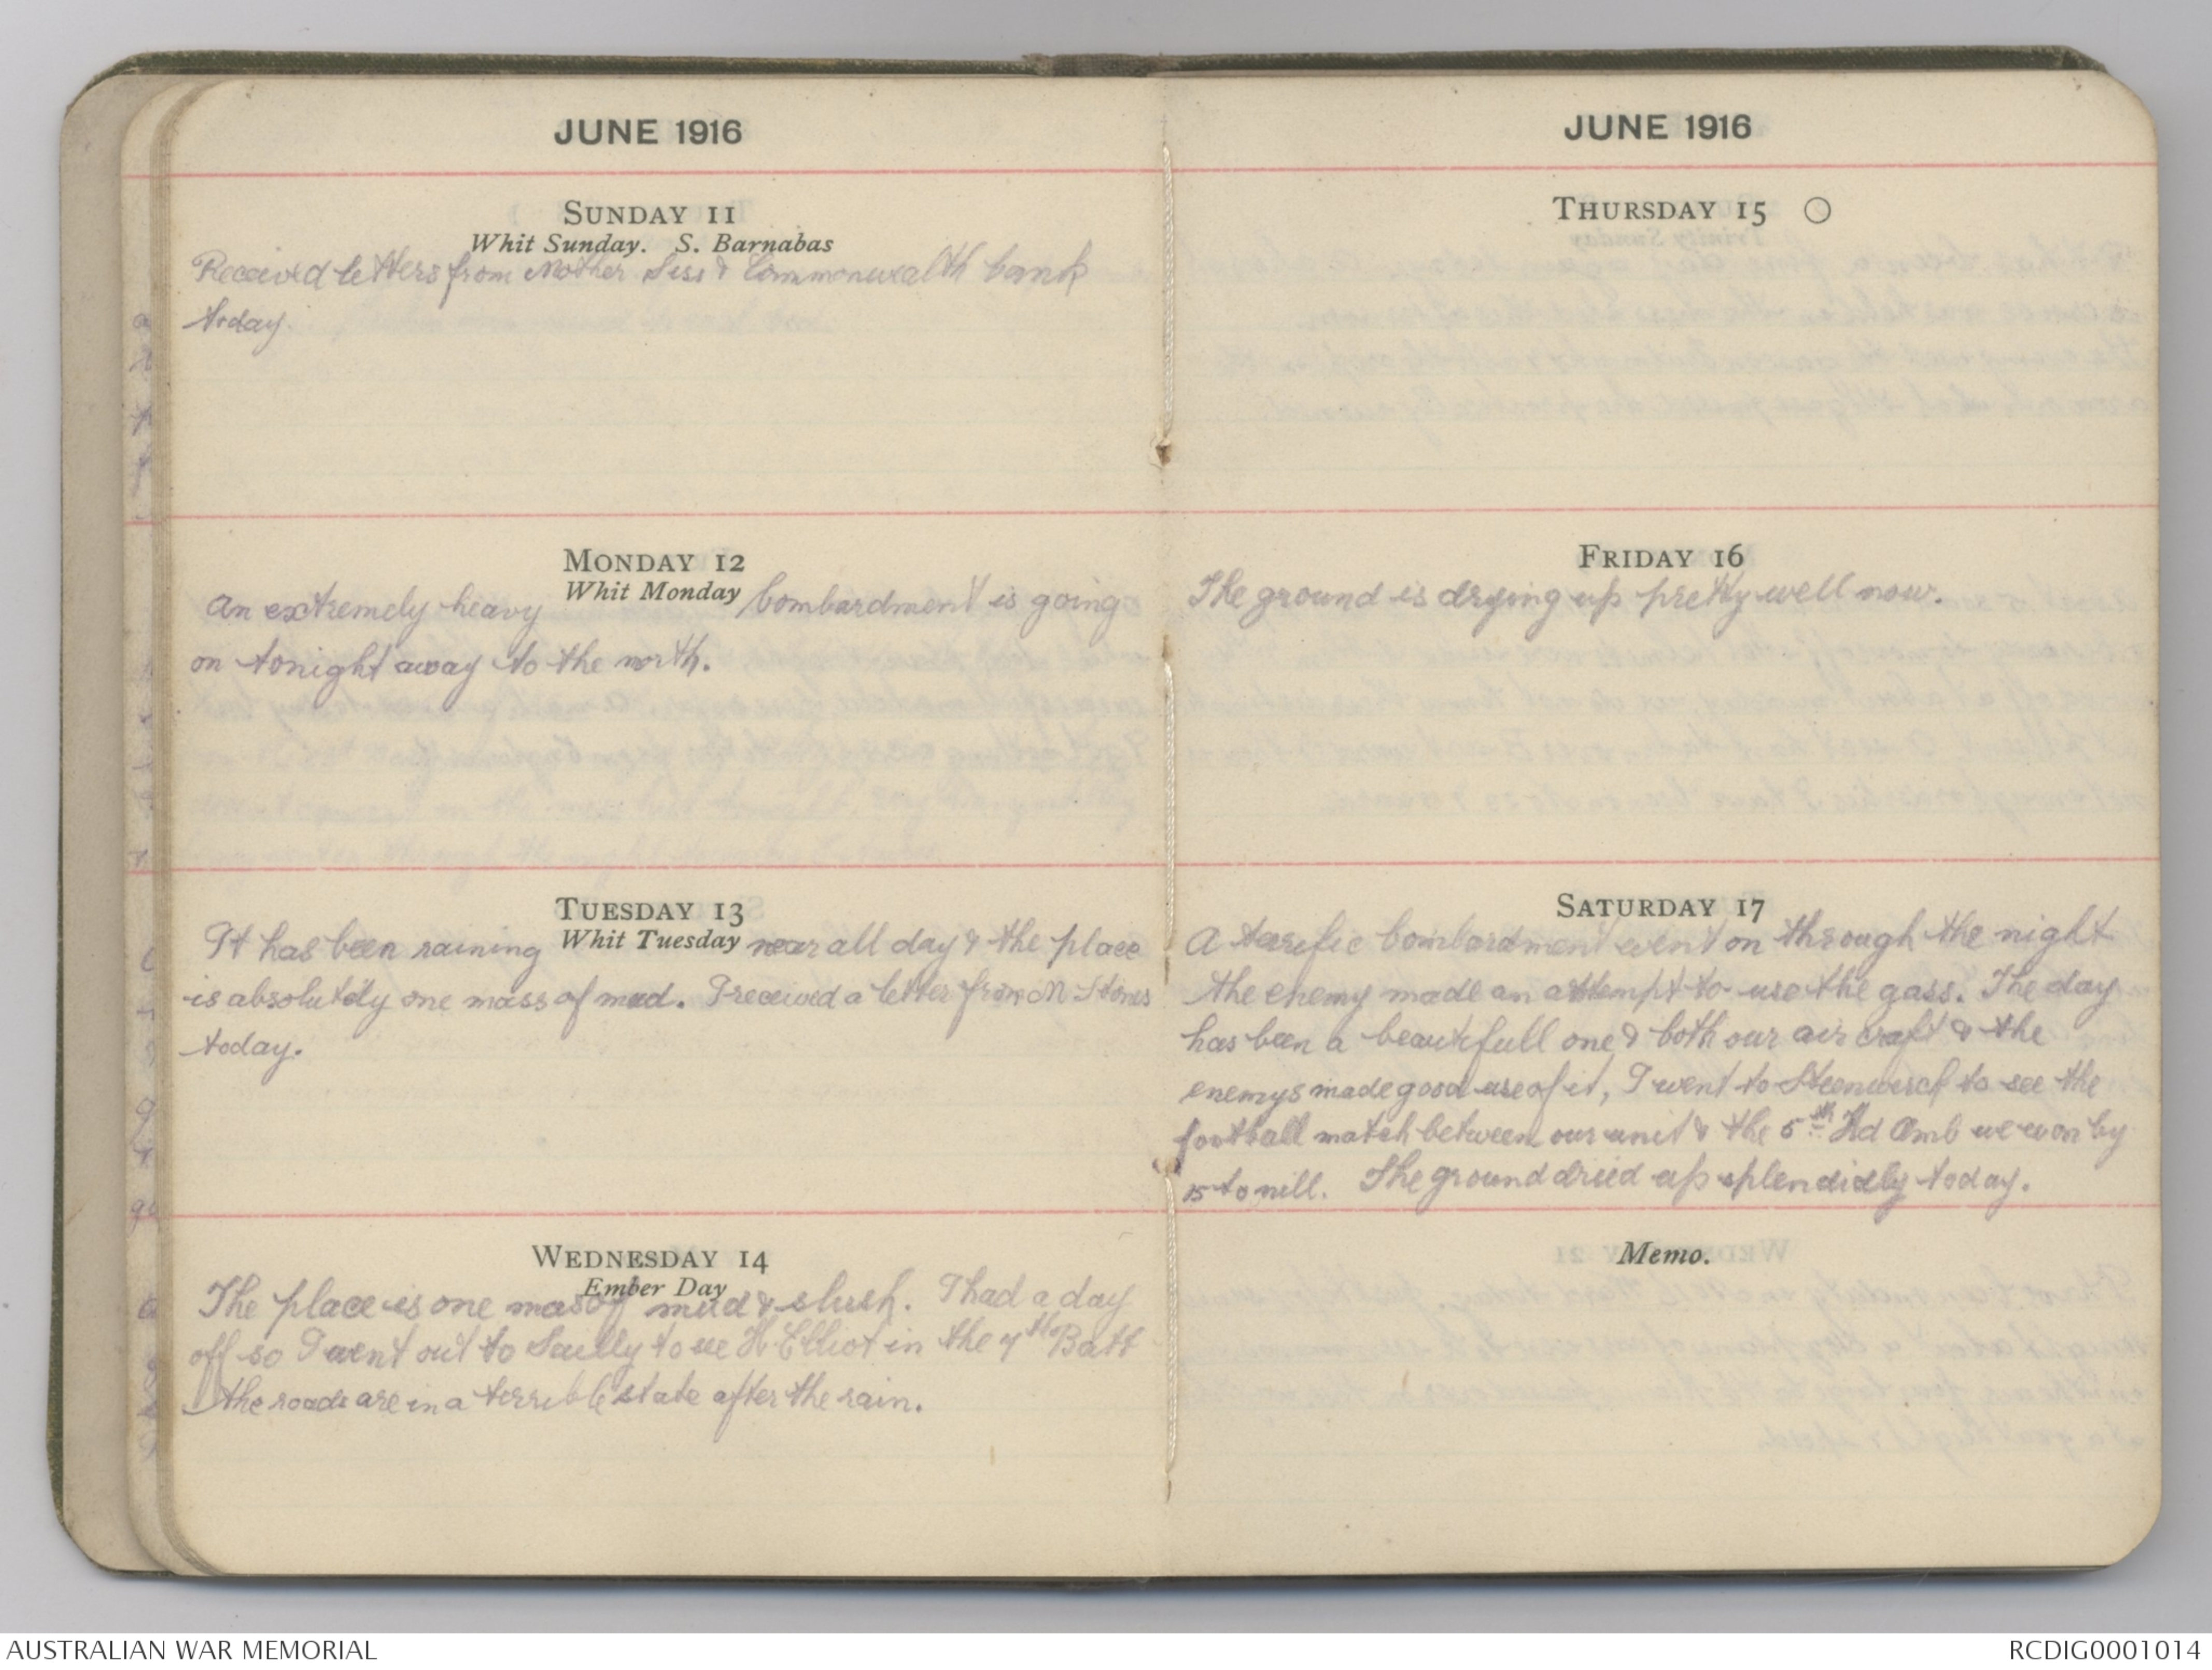 JUNE 1916
SUNDAY 11
Whit Sunday. S. Barnabas
Received letters from Mother Siss & Commonwealth bank
today.
MONDAY 12
Whit Monday
An extremely heavy bombardment is going
on tonight away to the north.
TUESDAY 13
Whit Tuesday
It has been raining near all day & the place
is absolutely one mass of mud. I received a letter from M Stones
today.
WEDNESDAY 14
Ember Day
The place is one mas of mud & slush. I had a day
off so I went out to Sailly to see H Elliot in the 7th Batt
the roads are in a terrible state after the rain.
JUNE 1916
THURSDAY 15
FRIDAY 16
The ground is drying up pretty well now.
SATURDAY 17
A terrific bombardment went on through the night
the enemy made an attempt to use the gass. The day
has been a beautifull one & both our air craft & the
enemys made good use of it, I went to Steenwerck to see the
football match between our unit & the 5th Fld Amb we won by
15 to nill. The ground dried up splendidly today.
Memo.
AUSTRALIAN WAR MEMORIAL
RCDIG0001014